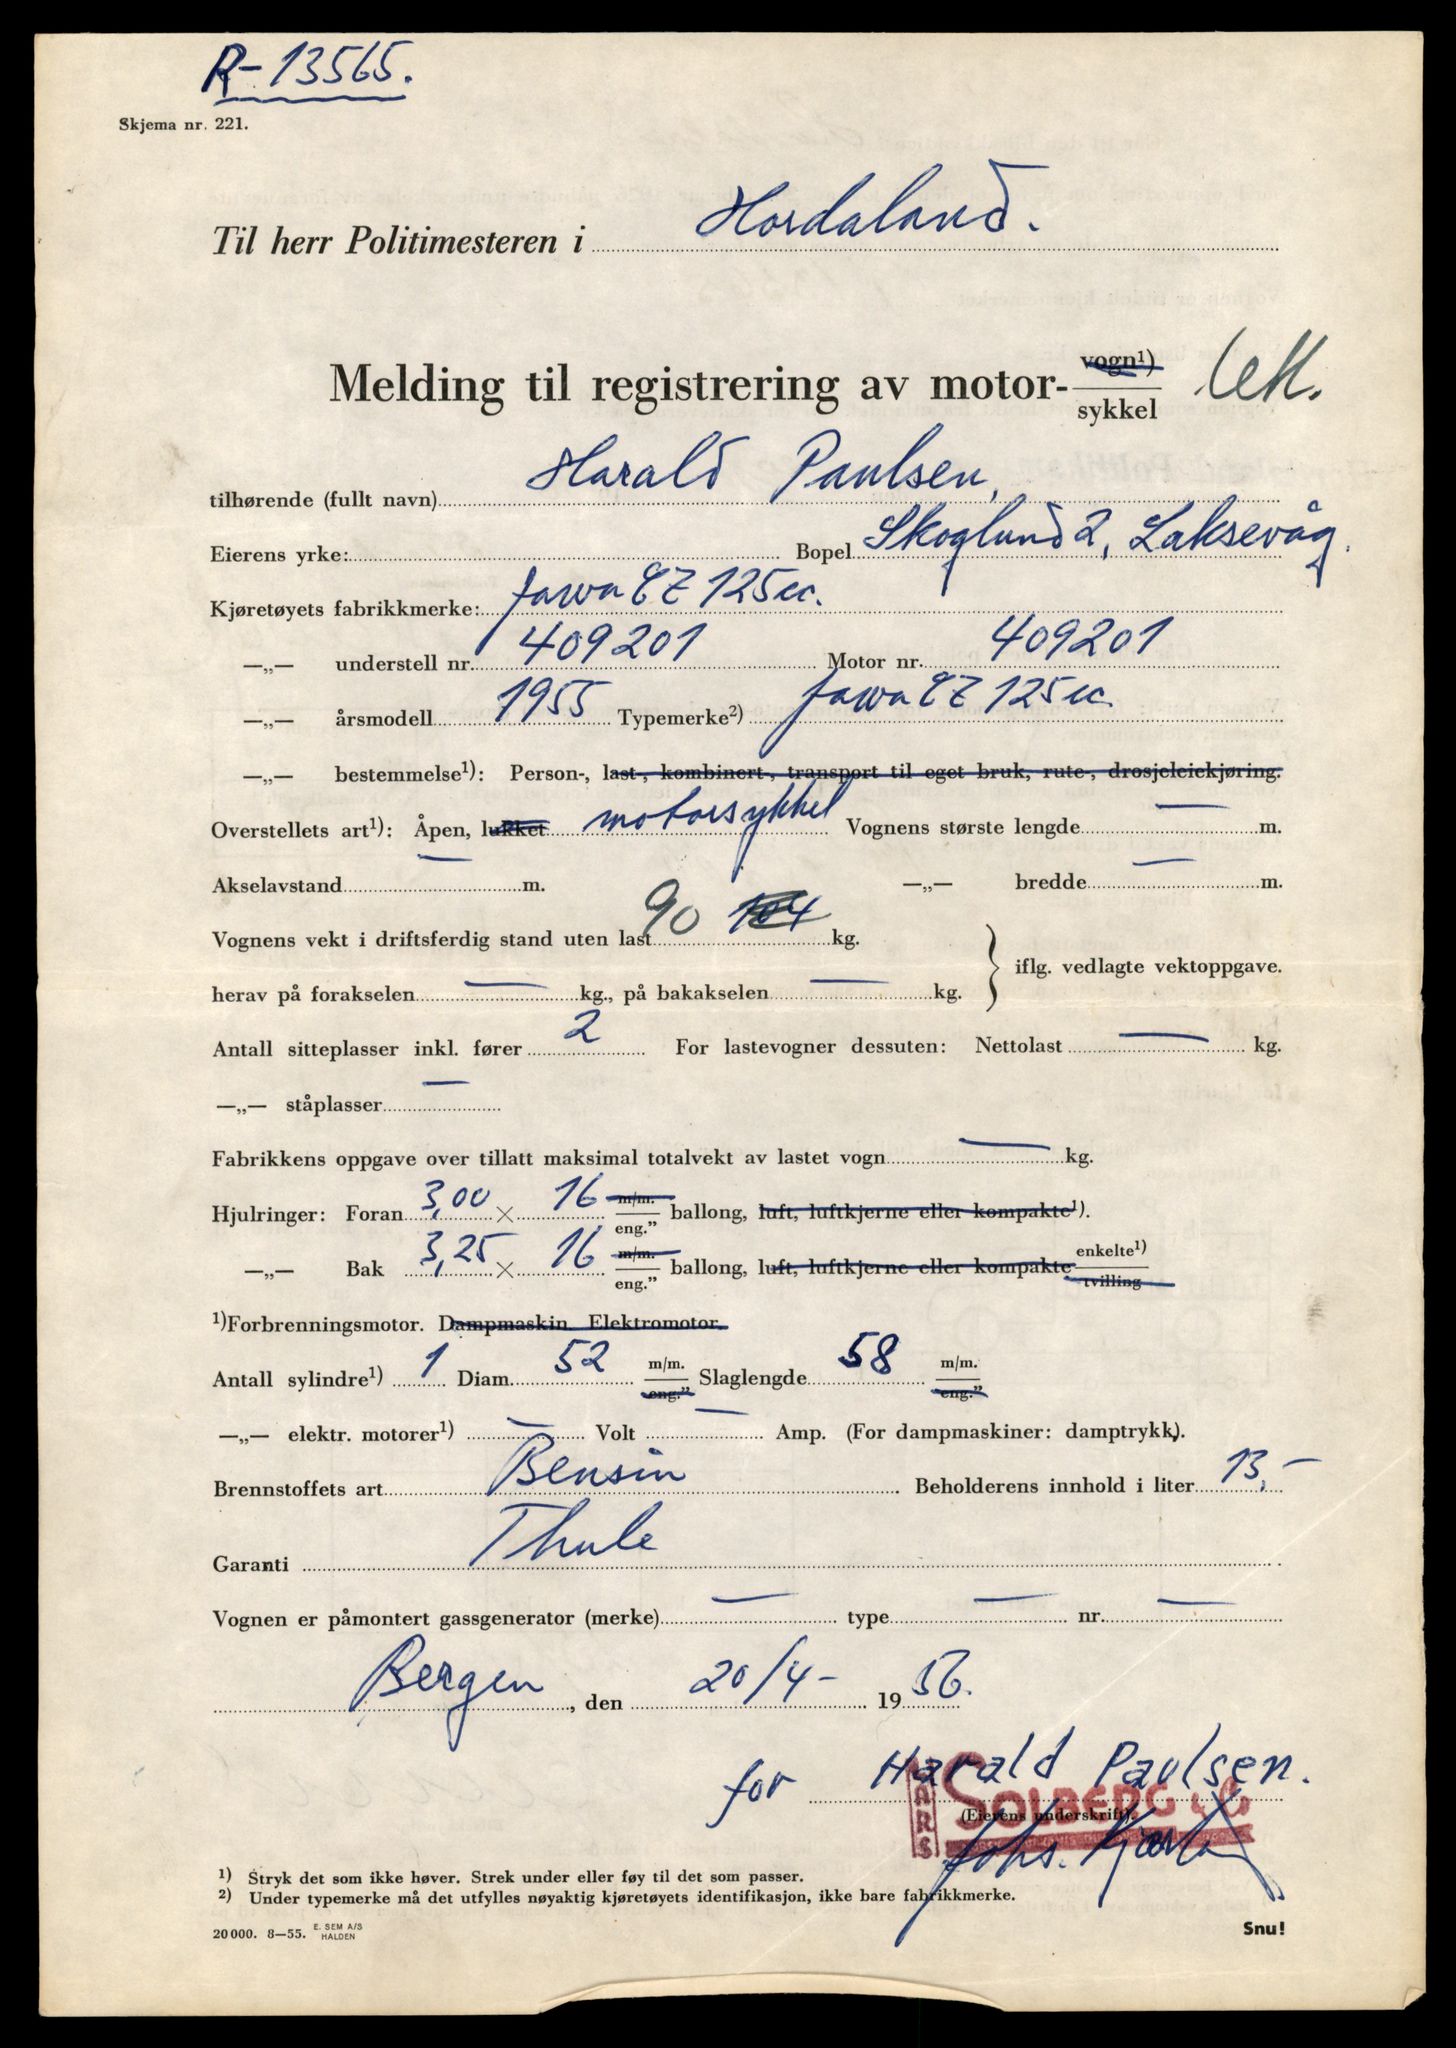 R-13565.
Skjema nr. 221.
Til herr Politimesteren i Hordaland.
Melding til registrering av motor- vogn¹) sykkel lett.
tilhørende (fullt navn) Harald Paulsen,
Eierens yrke: Bopel Skoglund 2, Laksevåg.
Kjøretøyets fabrikkmerke: Jawa CZ 125 cc.
—„— understell nr. 409201 Motor nr. 409201
—„— årsmodell 1955 Typemerke²) Jawa CZ 125 cc.
—„— bestemmelse¹): Person-, last-, kombinert-, transport til eget bruk, rute-, drosjeleiekjøring.
Overstellets art¹): Åpen, lukket motorsykkel Vognens største lengde — m.
Akselavstand — m. —„— bredde — m.
Vognens vekt i driftsferdig stand uten last 90 104 kg.
iflg. vedlagte vektoppgave.
herav på forakselen — kg., på bakakselen — kg.
Antall sitteplasser inkl. fører 2 For lastevogner dessuten: Nettolast — kg.
—„— ståplasser —
Fabrikkens oppgave over tillatt maksimal totalvekt av lastet vogn — kg.
Hjulringer: Foran 3,00 × 16 m/m. eng.” ballong, luft, luftkjerne eller kompakte¹).
—„— Bak 3,25 × 16 m/m. eng.” ballong, luft, luftkjerne eller kompakte enkelte¹) tvilling
¹)Forbrenningsmotor. Dampmaskin. Elektromotor.
Antall sylindre¹) 1 Diam. 52 m/m. eng.” Slaglengde 58 m/m. eng.”
—„— elektr. motorer¹) — Volt — Amp. (For dampmaskiner: damptrykk).
Brennstoffets art Bensin Beholderens innhold i liter 13,-
Garanti Thule
Vognen er påmontert gassgenerator (merke) — type — nr. —
Bergen, den 20/4- 1956.
for Harald Paulsen.
LARS SOLBERG
(Eierens underskrift).
Johs.
¹) Stryk det som ikke høver. Strek under eller føy til det som passer.
²) Under typemerke må det utfylles nøyaktig kjøretøyets identifikasjon, ikke bare fabrikkmerke.
20 000. 8—55. E. SEM A/S HALDEN
Snu!